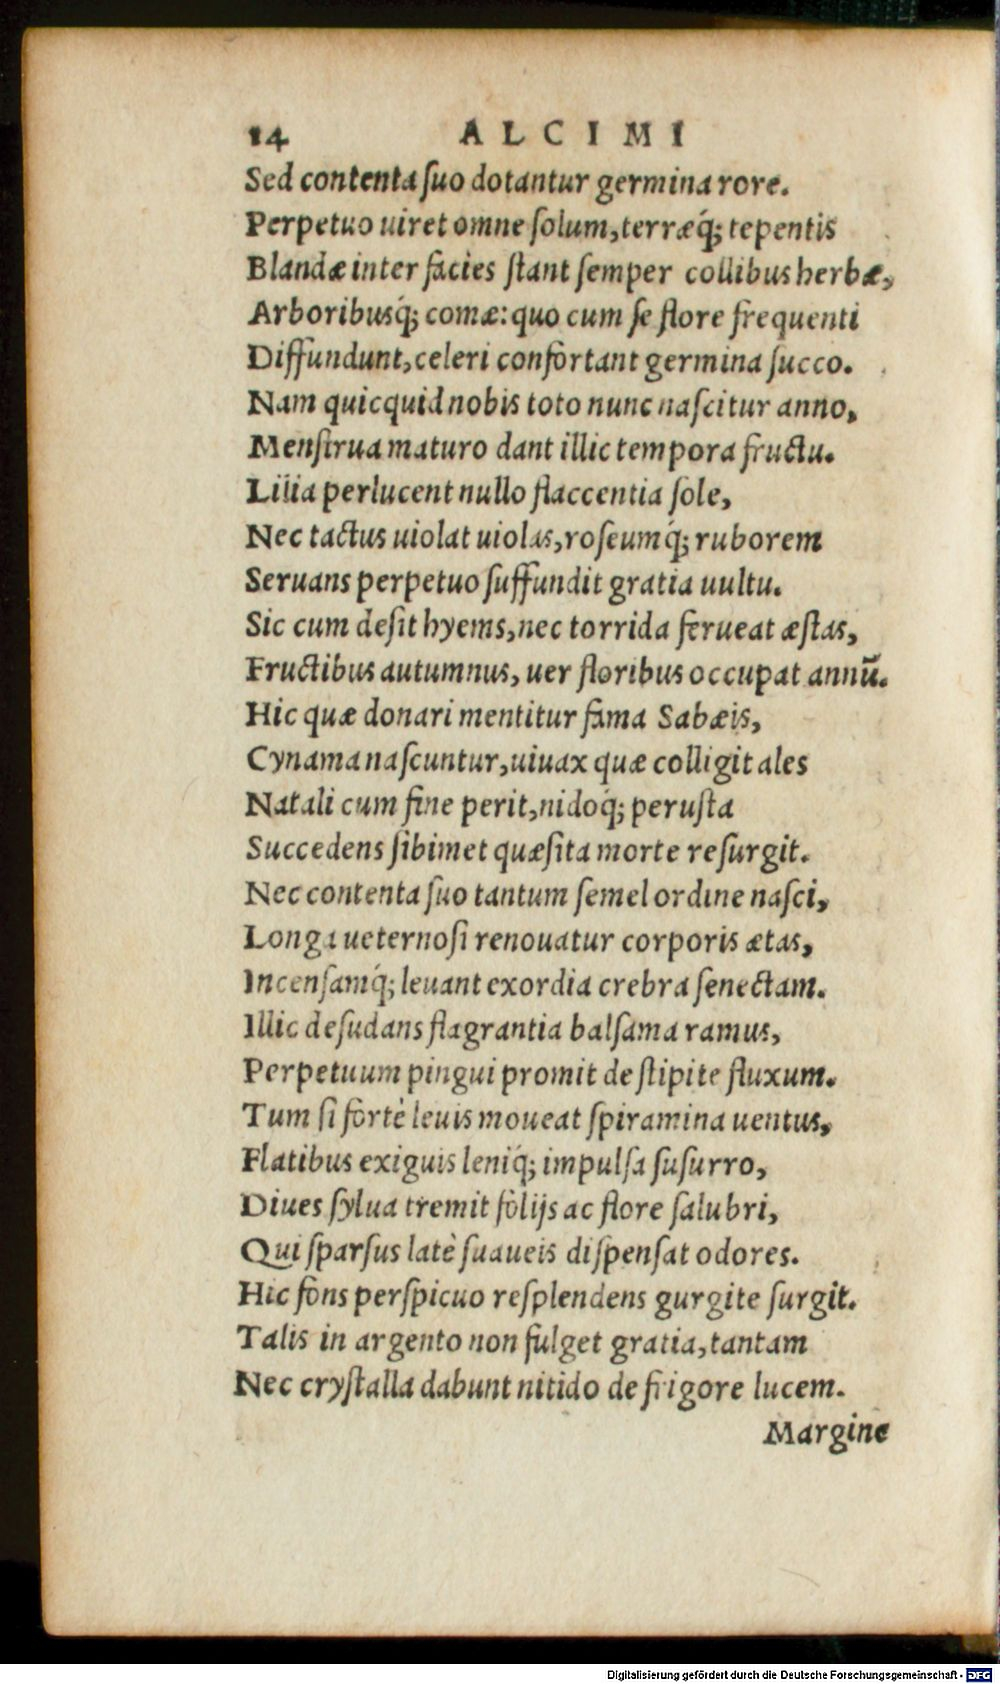 14 ALCIMI
Sed contenta ſuo dotantur germina rore.
Perpetuo uiret omne ſolum, terræq́; tepentis
Blandæ inter facies ſtant ſemper collibus herbæ,
Arboribusq́; comæ: quo cum ſe flore frequenti
Diffundunt, celeri confortant germina ſucco.
Nam quicquid nobis toto nunc naſcitur anno,
Menſtrua maturo dant illic tempora fructu.
Lilia perlucent nullo flaccentia ſole,
Nec tactus uiolat uiolas, roſeumq́; ruborem
Seruans perpetuo ſuffundit gratia uultu.
Sic cum deſit hyems, nec torrida ferueat æſtas,
Fructibus autumnus, uer floribus occupat annū.
Hic quæ donari mentitur fama Sabæis,
Cynama naſcuntur, uiuax quæ colligit ales
Natali cum fine perit, nidoq́; peruſta
Succedens ſibimet quæſita morte reſurgit.
Nec contenta ſuo tantum ſemel ordine naſci,
Longa ueternoſi renouatur corporis ætas,
Incenſamq́; leuant exordia crebra ſenectam.
Illic deſudans flagrantia balſama ramus,
Perpetuum pingui promit de ſtipite fluxum.
Tum ſi fortè leuis moueat ſpiramina uentus,
Flatibus exiguis leniq́; impulſa ſuſurro,
Diues ſylua tremit folijs ac flore ſalubri,
Qui ſparſus latè ſuaueis diſpenſat odores.
Hic fons perſpicuo reſplendens gurgite ſurgit.
Talis in argento non fulget gratia, tantam
Nec cryſtalla dabunt nitido de frigore lucem.
Margine
Digitalisierung gefördert durch die Deutsche Forschungsgemeinschaft - DFG